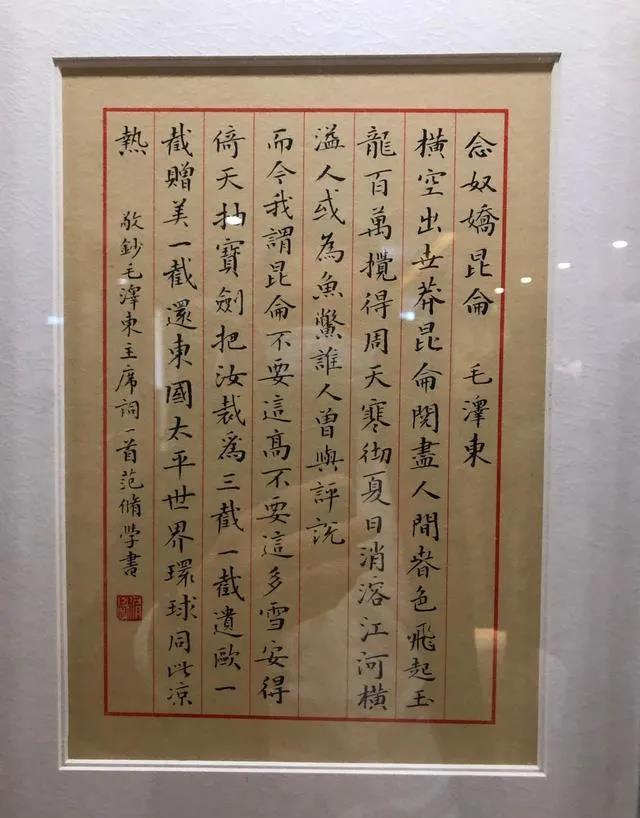 念奴嬌昆侖　毛澤東
橫空出世莽昆侖閱盡人間春色飛起玉
龍百萬攪得周天寒彻夏日消溶江河橫
溢人或為魚鱉誰人曾與評說
而今我謂昆侖不要這高不要這多雪安得
倚天抽寶劍把汝裁為三截一截遺歐一
截贈美一截還東國太平世界環球同此凉
熱　敬鈔毛澤東主席詞一首范脩學書